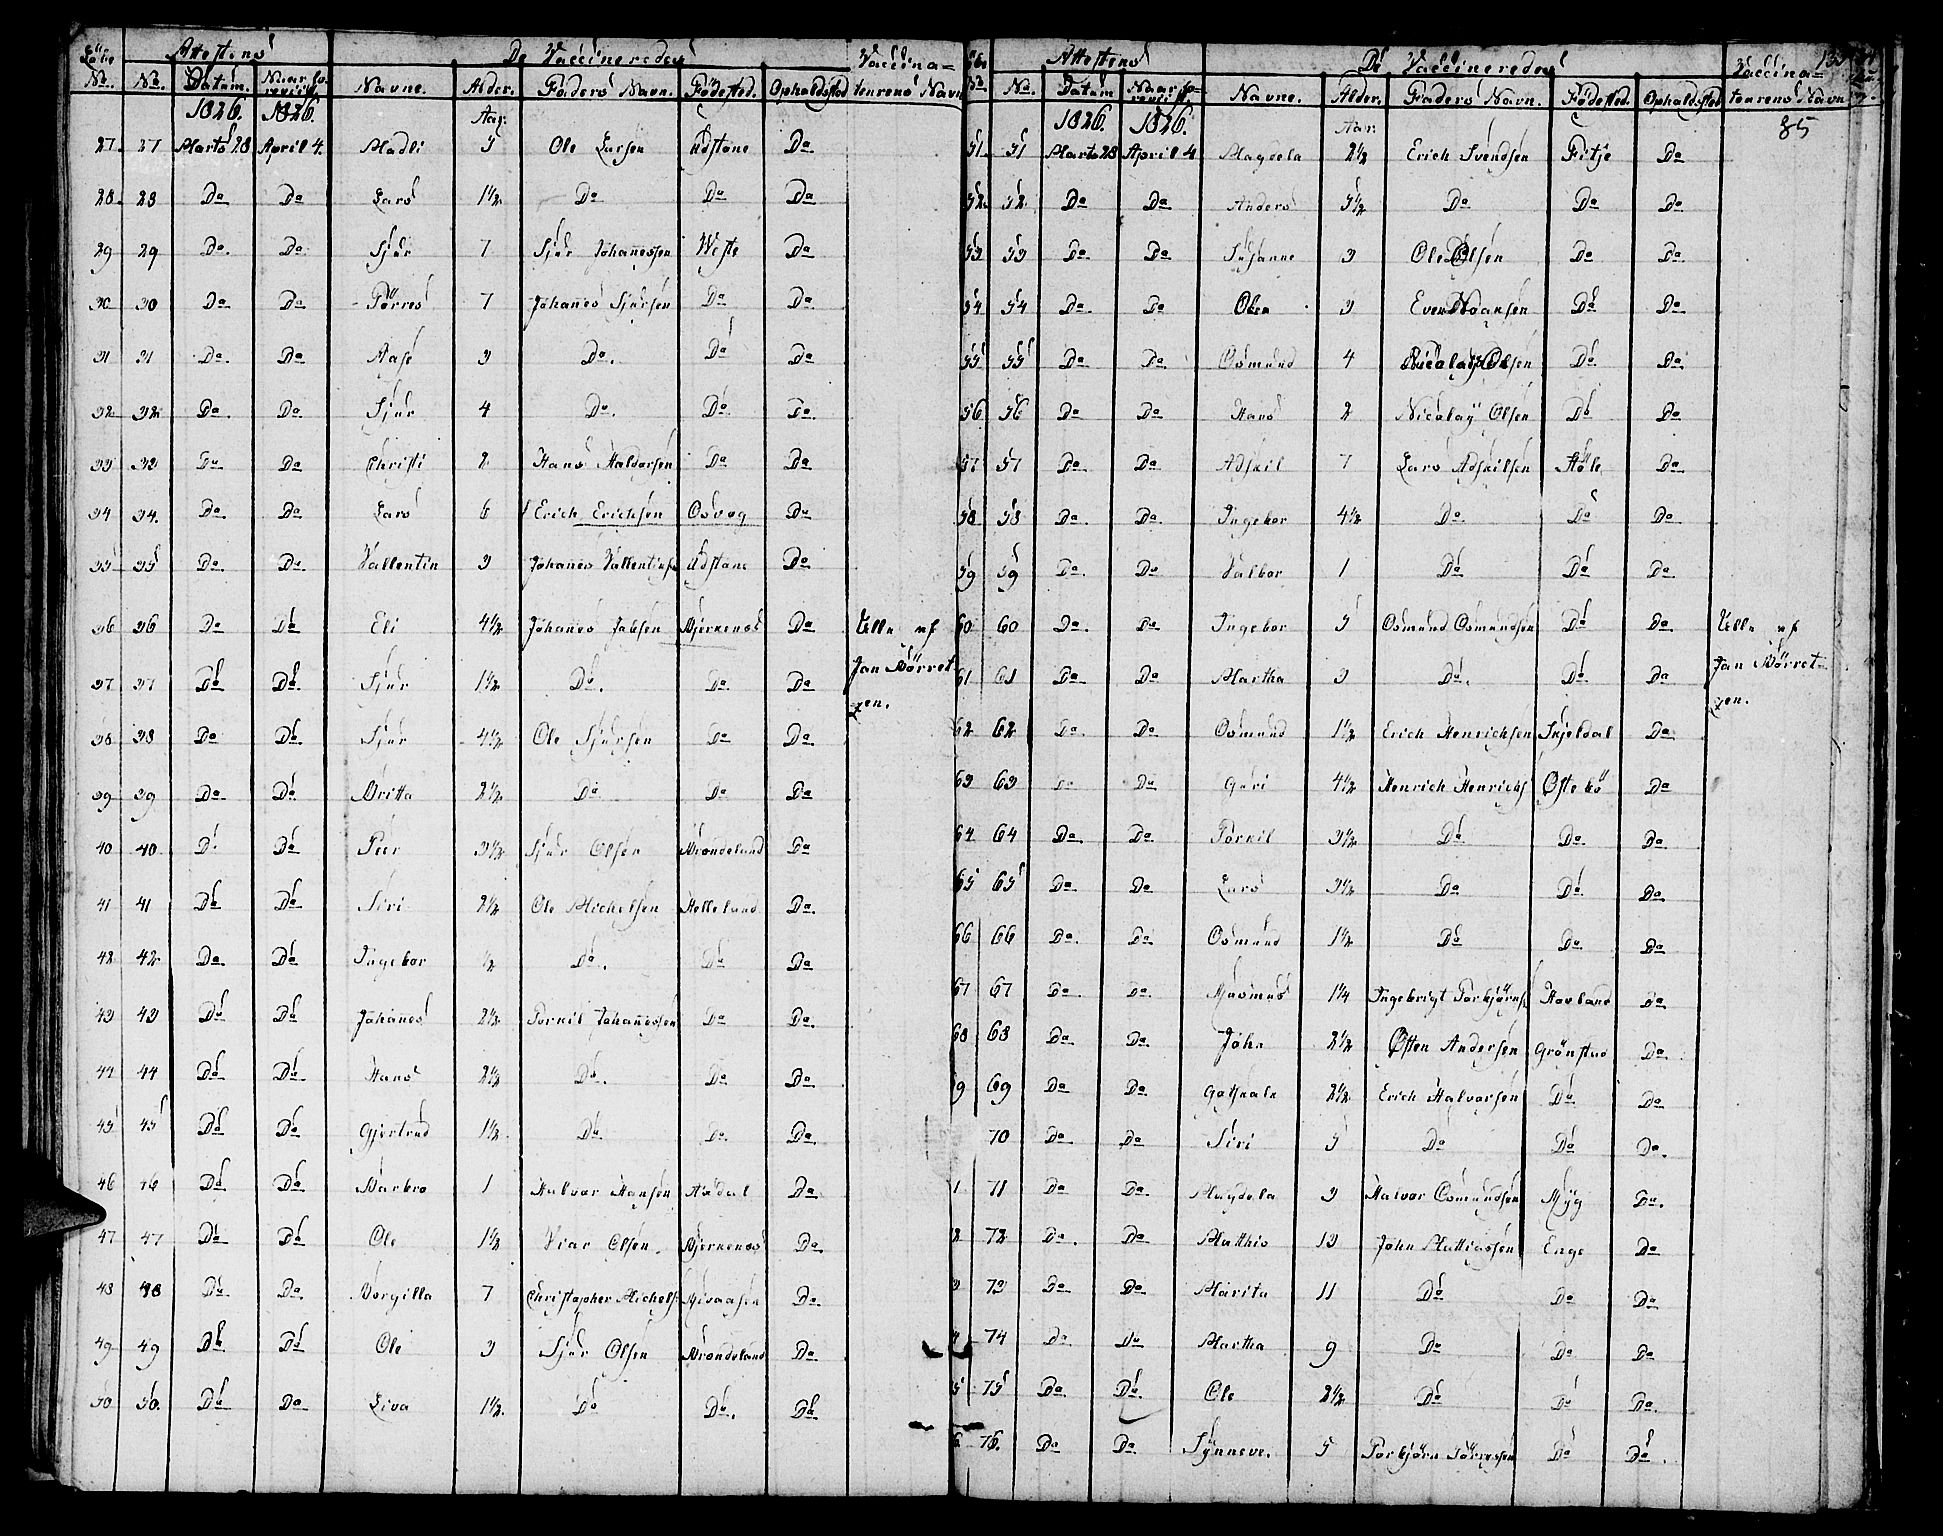 Attestens De Vaccineredes Vaccina=
No. No. Datum. Naar Navne. Alder. Faders Navn. Fødested. Opholdssted teurens Navn
1826. 1826. Aar.
27. 27 Marts 28 April 4. Madli 5 Ole Larsen Udstone Do
28. 28 Do Do Lars 1½ Do Do Do
29 29 Do. Do. Sjur 7 Sjur Johanessen Do
30 30 Do Do Tørres 7 Johanes Sjursen Do Do
31 31 Do. Do Aase 3 Do. Do Do
32 32 Do. Do Sjur 4 Do. Do Do
33 33 Do Do Christi 2 Hans Haldorsen Do Do
34 34. Do Do Lars 6 Erich Erichsen Osvog Do
35 35 Do. Do. Vallentin 3 Johanes Vallentins Do
36 36 Do Do Eli 4½ Johanes Jabsen Bjerkenes Do
37 37 Do Do Sjur 1½ Do. Do. Do
38 38 Do Do Sjur 4½ Ole Sjursen Do Do
39 39 Do Do Britta 2½ Do Do Do
40 40 Do Do Peer 3½ Sjur Olsen Brondeland Do
41 41 Do Do Siri 2½ Ole Michelsen Helleland Do
42 42 Do Do Ingebor ½ Do. Do Do
43 43 Do Do Johanes 2½ Torkil Johanessen Do Do
44 44 Do Do Hans 2½ Do. Do Do
45 45 Do Do Gjertrud 1½ Do Do Do
46 46 Do Do Barbro 1 Halvor Hansen Axdal Do
47 47 Do Do Ole 1½ Viar Olsen. Bjerkenes Do
48 48 Do Do. Borgilla 7 Christopher Michels Do
49 49 Do Do Ole 3 Sjur Olsen Brondeland Do
50 50. Do Do Liva 1½ Do Do Do
Alle af
Jan Børret
zen.
Attestens De Vaccineredes Vaccina=
No. No. Datum Naar Navne. Alder. Faders Navn. Fødested. Opholdssted teurens Navn
1826. 1826. Aar. 85
51 51 Marts 28 April 4 Magdela 2½ Erich Svendsen Fitje Do
52. 52 Do Do Anders 5½ Do Do Do
53 53 Do Do Susanne 3 Ole Olsen Do Do
54 54 Do Do Olen 3 Even Do Do
55 55 Do Do Osmund 4 Olsen Do Do
56 56 Do Do Hans 2 Nicolay Olsen Do Do
57 57 Do Do Adskil 7 Lars Adskilsen Støle Do
58 58 Do Do Ingebor 4½ Do Do Do
59 59 Do Do Valbor 1 Do Do Do
60 60 Do Do Ingebor 5 Osmund Osmundsen Do Do
61 61 Do Do Martha 3 Do. Do Do
62 62 Do Do Osmund 1½ Erich Henrichsen Skjeldal Do
63 63 Do Do Guri 4½ Henrich Henrichs Østebø Do
64 64 Do Do Torkil 3½ Do Do Do
65 65 Do Do Lars 3½ Do Do Do
66 66 Do Do Osmund 1½ Do Do Do
67 67 Do Do Rasmus 1¼ Ingebrigt Torbjørns Havland Do
68 68 Do. Do. John 2½ Østen Andersen Grønstad Do
9 69 Do Do 2½ Erich Halvorsen Do Do
70 Do Do Siri 5 Do Do Do.
1 71 Do Do. Magdela 3 Halvor Osmundsen Myg Do.
2 72 Do. Do Matthis 13 John Mattiassen Enge Do
3 73 Do Do Marita 11 Do Do Do
4 74 Do Do Martha 9 Do Do Do
5 75 Do Do. Ole 2½ Do Do Do.
6 76. Do Do Synneve. 5 Torbjørn Tørressen Do Do.
Alle af
Jan Børret
zen.